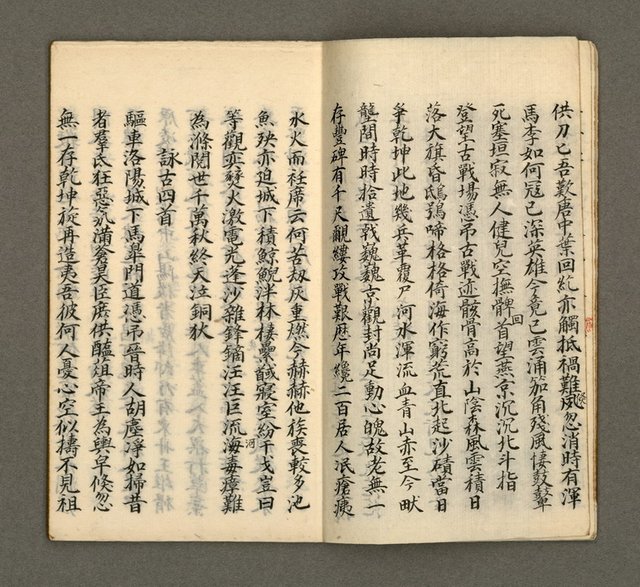 供刀匕吾歎唐中葉回紇亦觸抵禍難夙忽消時有渾
馬李如何冦已深英雄今竟已雲涌笳角殘風悽鼓鼙
死塞垣寂無人健兒空撫髀回首望燕京沉沉北斗指
登望古戰場憑弔古戰迹骸骨高於山陰森風雲積日
落大旗昏鴟鵂啼格格倚海作窮荒直北起沙磧當日
爭乾坤此地幾兵革覆尸河水渾流血青山赤至今畎
壟間時時拾遺戟巍巍京觀封尚足動心魄故老無一
存豐碑有千尺覼縷攻戰艱歷年纔二百居人泯瘡痍
水火而衽席云何苦劫灰重燃今赫赫他族喪較多池
魚殃亦迫城下積鯨鯢泮林棲鴞鵩寢室紛干戈豈曰
等觀奕燹火激電光蓬沙雜鋒鏑汪汪巨流河海毒瘴難
為滌閱世千萬秋終天泣銅狄
詠古四首
驅車洛陽城下馬皋門道憑弔晉時人胡塵淨如掃昔
者羣氏狂惡氛滿蒼昊臣庶供醢葅帝王為輿皁倏忽
無一存乾坤旋再造夷吾彼何人憂心空似擣不見祖